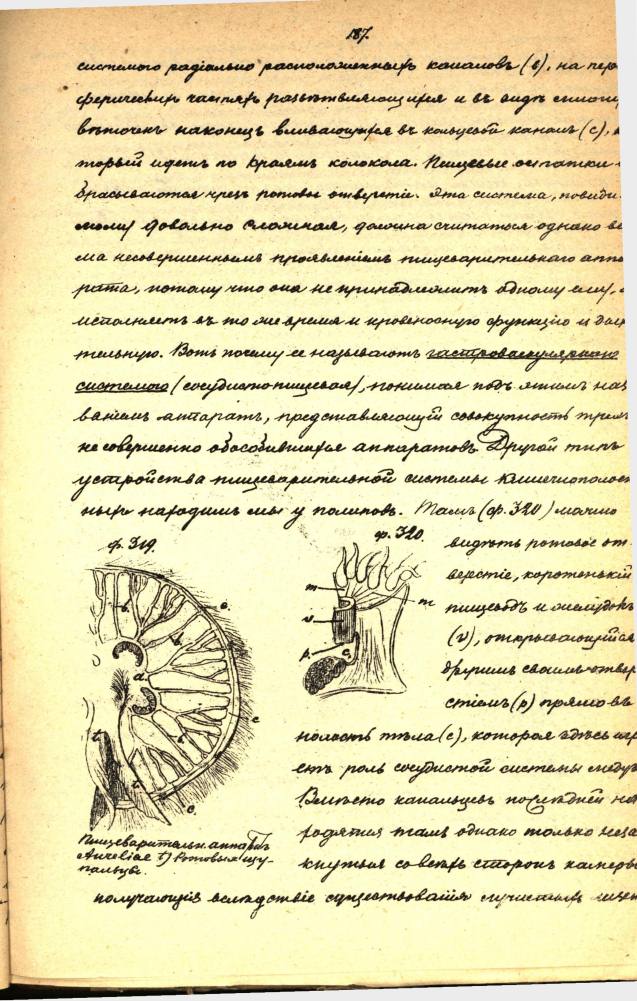 187.
системою радіально расположенныхъ каналовъ (в), на пери
сферическихъ частяхъ развѣтвляющихся и въ видѣ
вѣточекъ наконецъ вливающихся въ кольцевой каналъ (с), к
торый идетъ по краямъ колокола. Пищевые остатки
брасываются чрезъ ротовое отверстіе. Эта система, повиди
мому довольно сложная, должна считаться однако ве
ма несовершеннымъ проявленіемъ пищеварительнаго аппа
рата, потому что она не принадлежитъ одному ему,
исполняетъ въ то же время и кровеносную функцію и дых
тельную. Вотъ почему ее называютъ гастроваскулярною
системою (сосудисто-пищевая), понимая подъ этимъ наз
ваніемъ аппаратъ, представляющій совокупность трехъ
не совершенно обособившихся аппаратовъ. Другой типъ
устройства пищеварительной системы кишечнополост
ныхъ находимъ мы у полиповъ. Тамъ (ф. 320) можно
ф. 319.
ф. 320.
видѣть ротовое от
верстіе, коротенькій
пищеводъ и желудокъ
(v), открывающійся
другимъ своимъ отвер
стіемъ (p) прямо въ
полость тѣла (с), которая здѣсь игр
етъ роль сосудистой системы медуз
Вмѣсто канальцевъ послѣдней на
ходятся тамъ однако только неза
кнутыя со всѣхъ сторонъ камеры
Пищеварительн. аппаратъ
Aureliae t) Ротовыя щу-
пальцы.
получающія вслѣдствіе существованія лучистыхъ